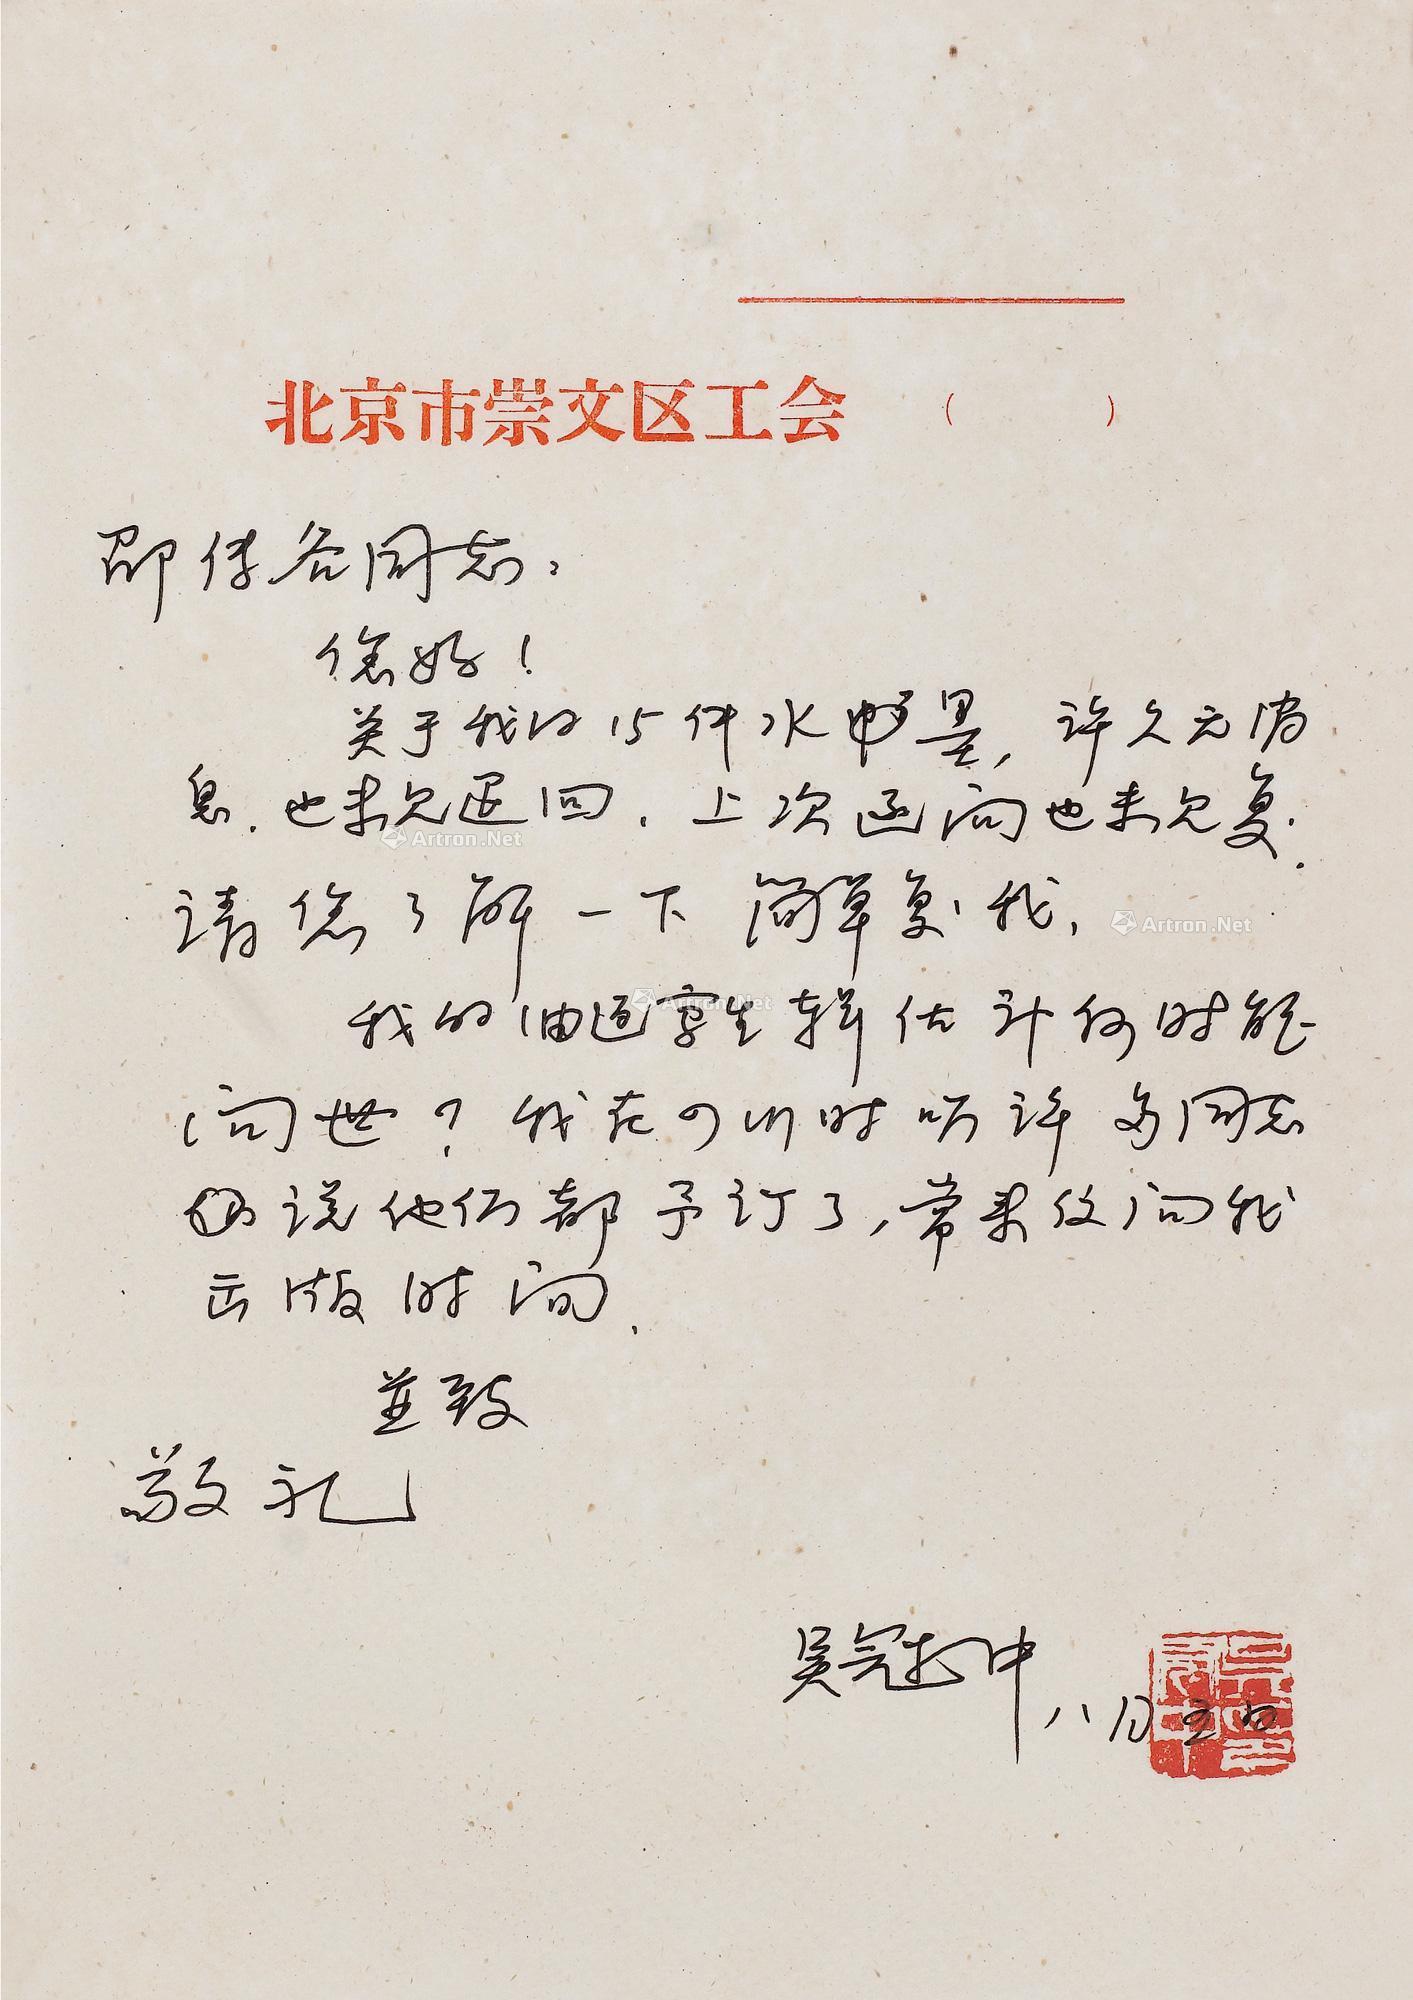 北京市崇文区工会 （ ）
邵传谷同志：
您好！
关于我的15件水墨，许久无消
息，也未见退回，上次函问也未见复.
请您了解一下简单复我，
我的油画写生辑估计何时能
问世？我在四川时听许多同志
说他们都予订了，常来信问我
出版时间.
並致
敬礼
吴冠中
八月五日
Artron.Net
Artron.Net
Artron.Net